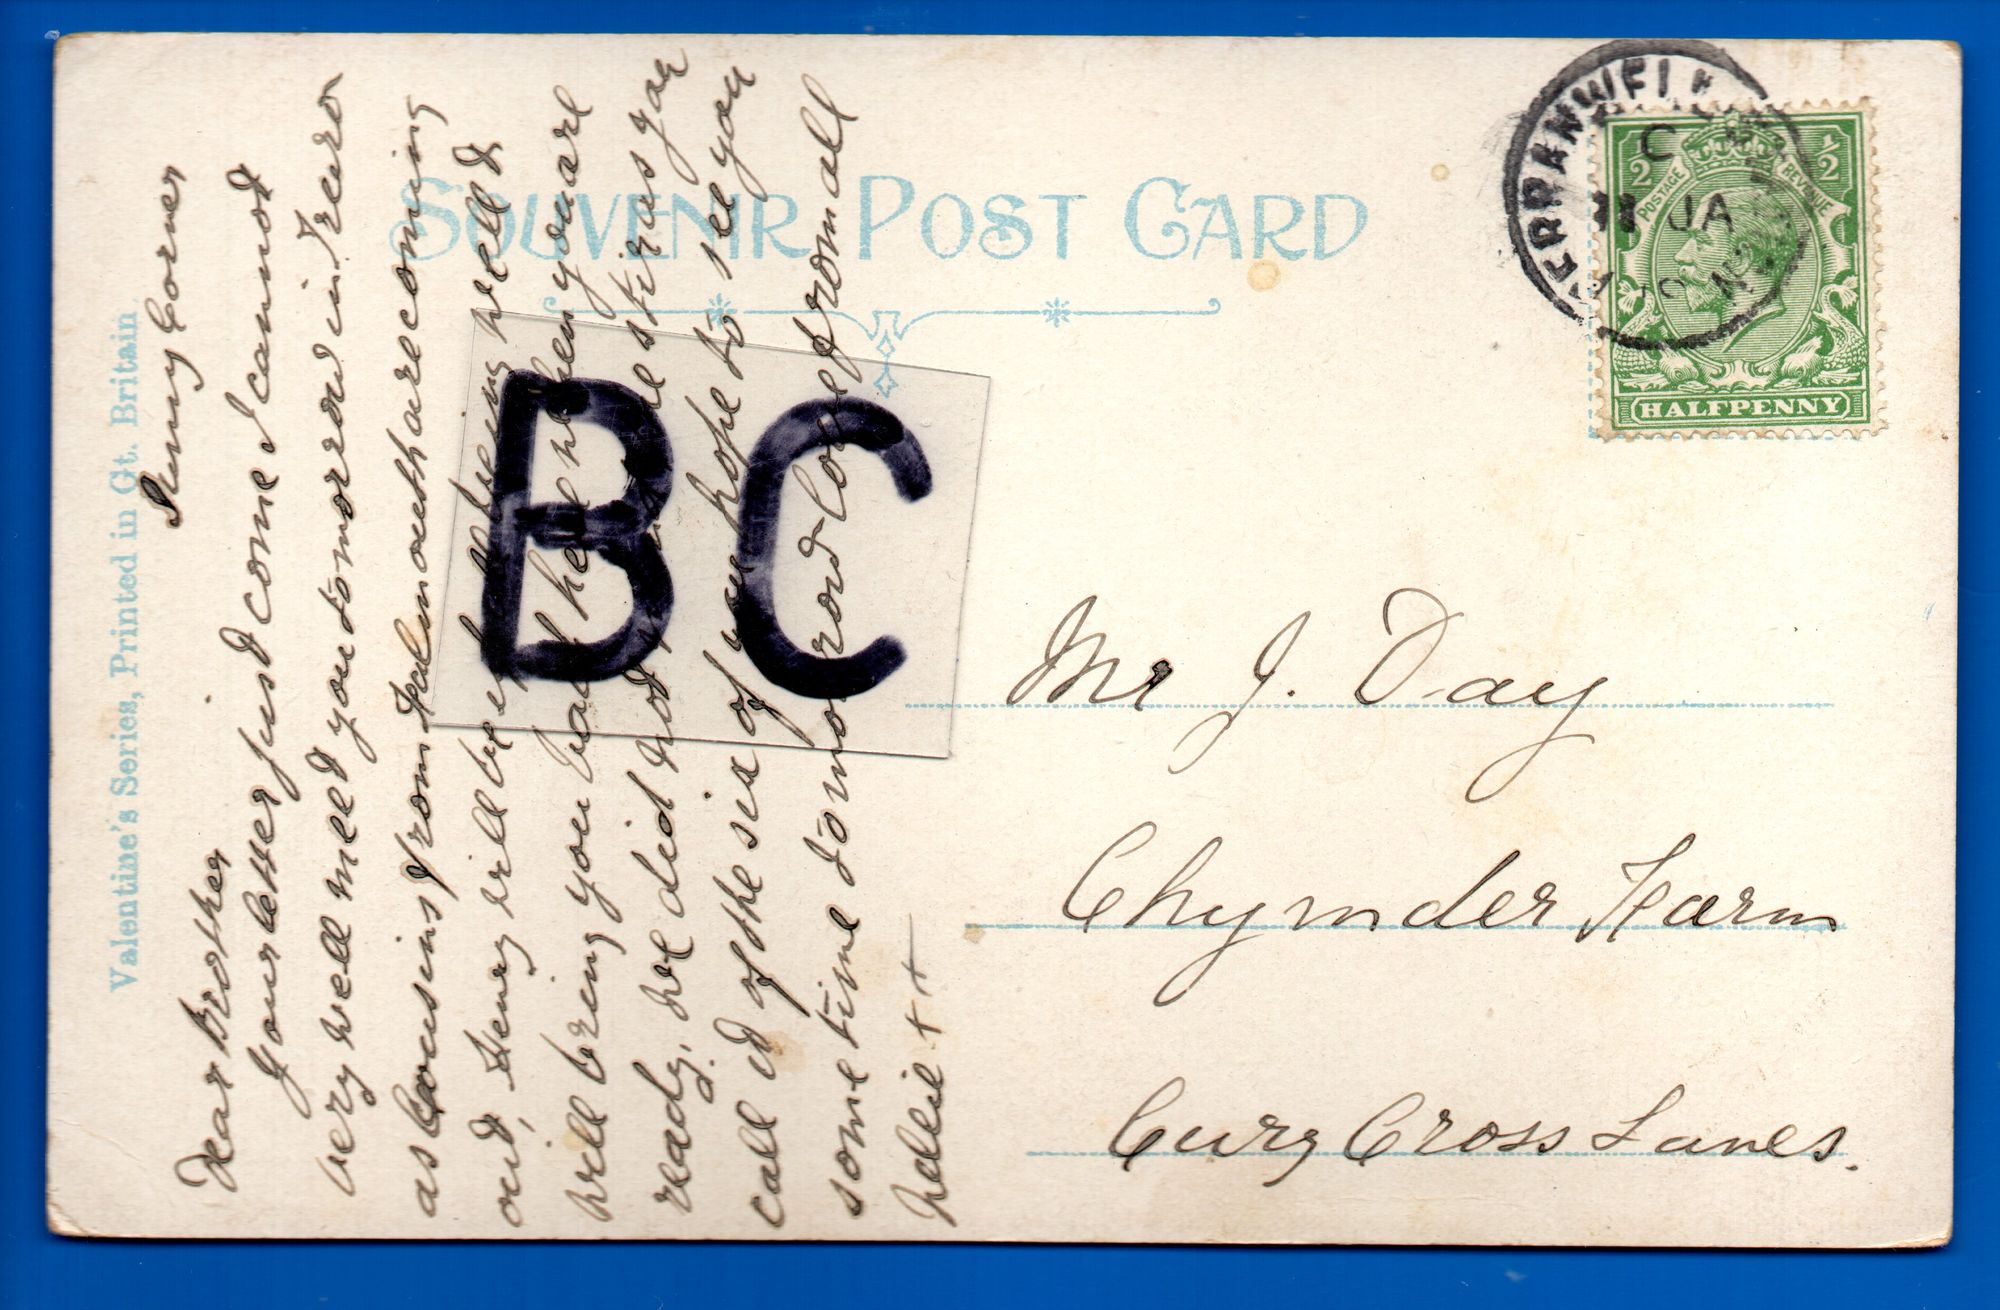 SOUVENIR POST CARD
Valentine's Series, Printed in Gt. Britain
Sunny Corner
Dear Brother
Your letter just come I cannot
very well meet you tomorrow in Truro
as Cousins from Falmouth are coming
out, Henry will be
will bring you back when you are
ready, we did not
call it of the six of you hope to see you
some time tomorrow Love from all
Nellie + + +
BC
PERRANWELL
C
JA
POSTAGE
REVENUE
1/2
1/2
HALFPENNY
Mr J. Day
Chymder Farm
Cury Cross Lanes.